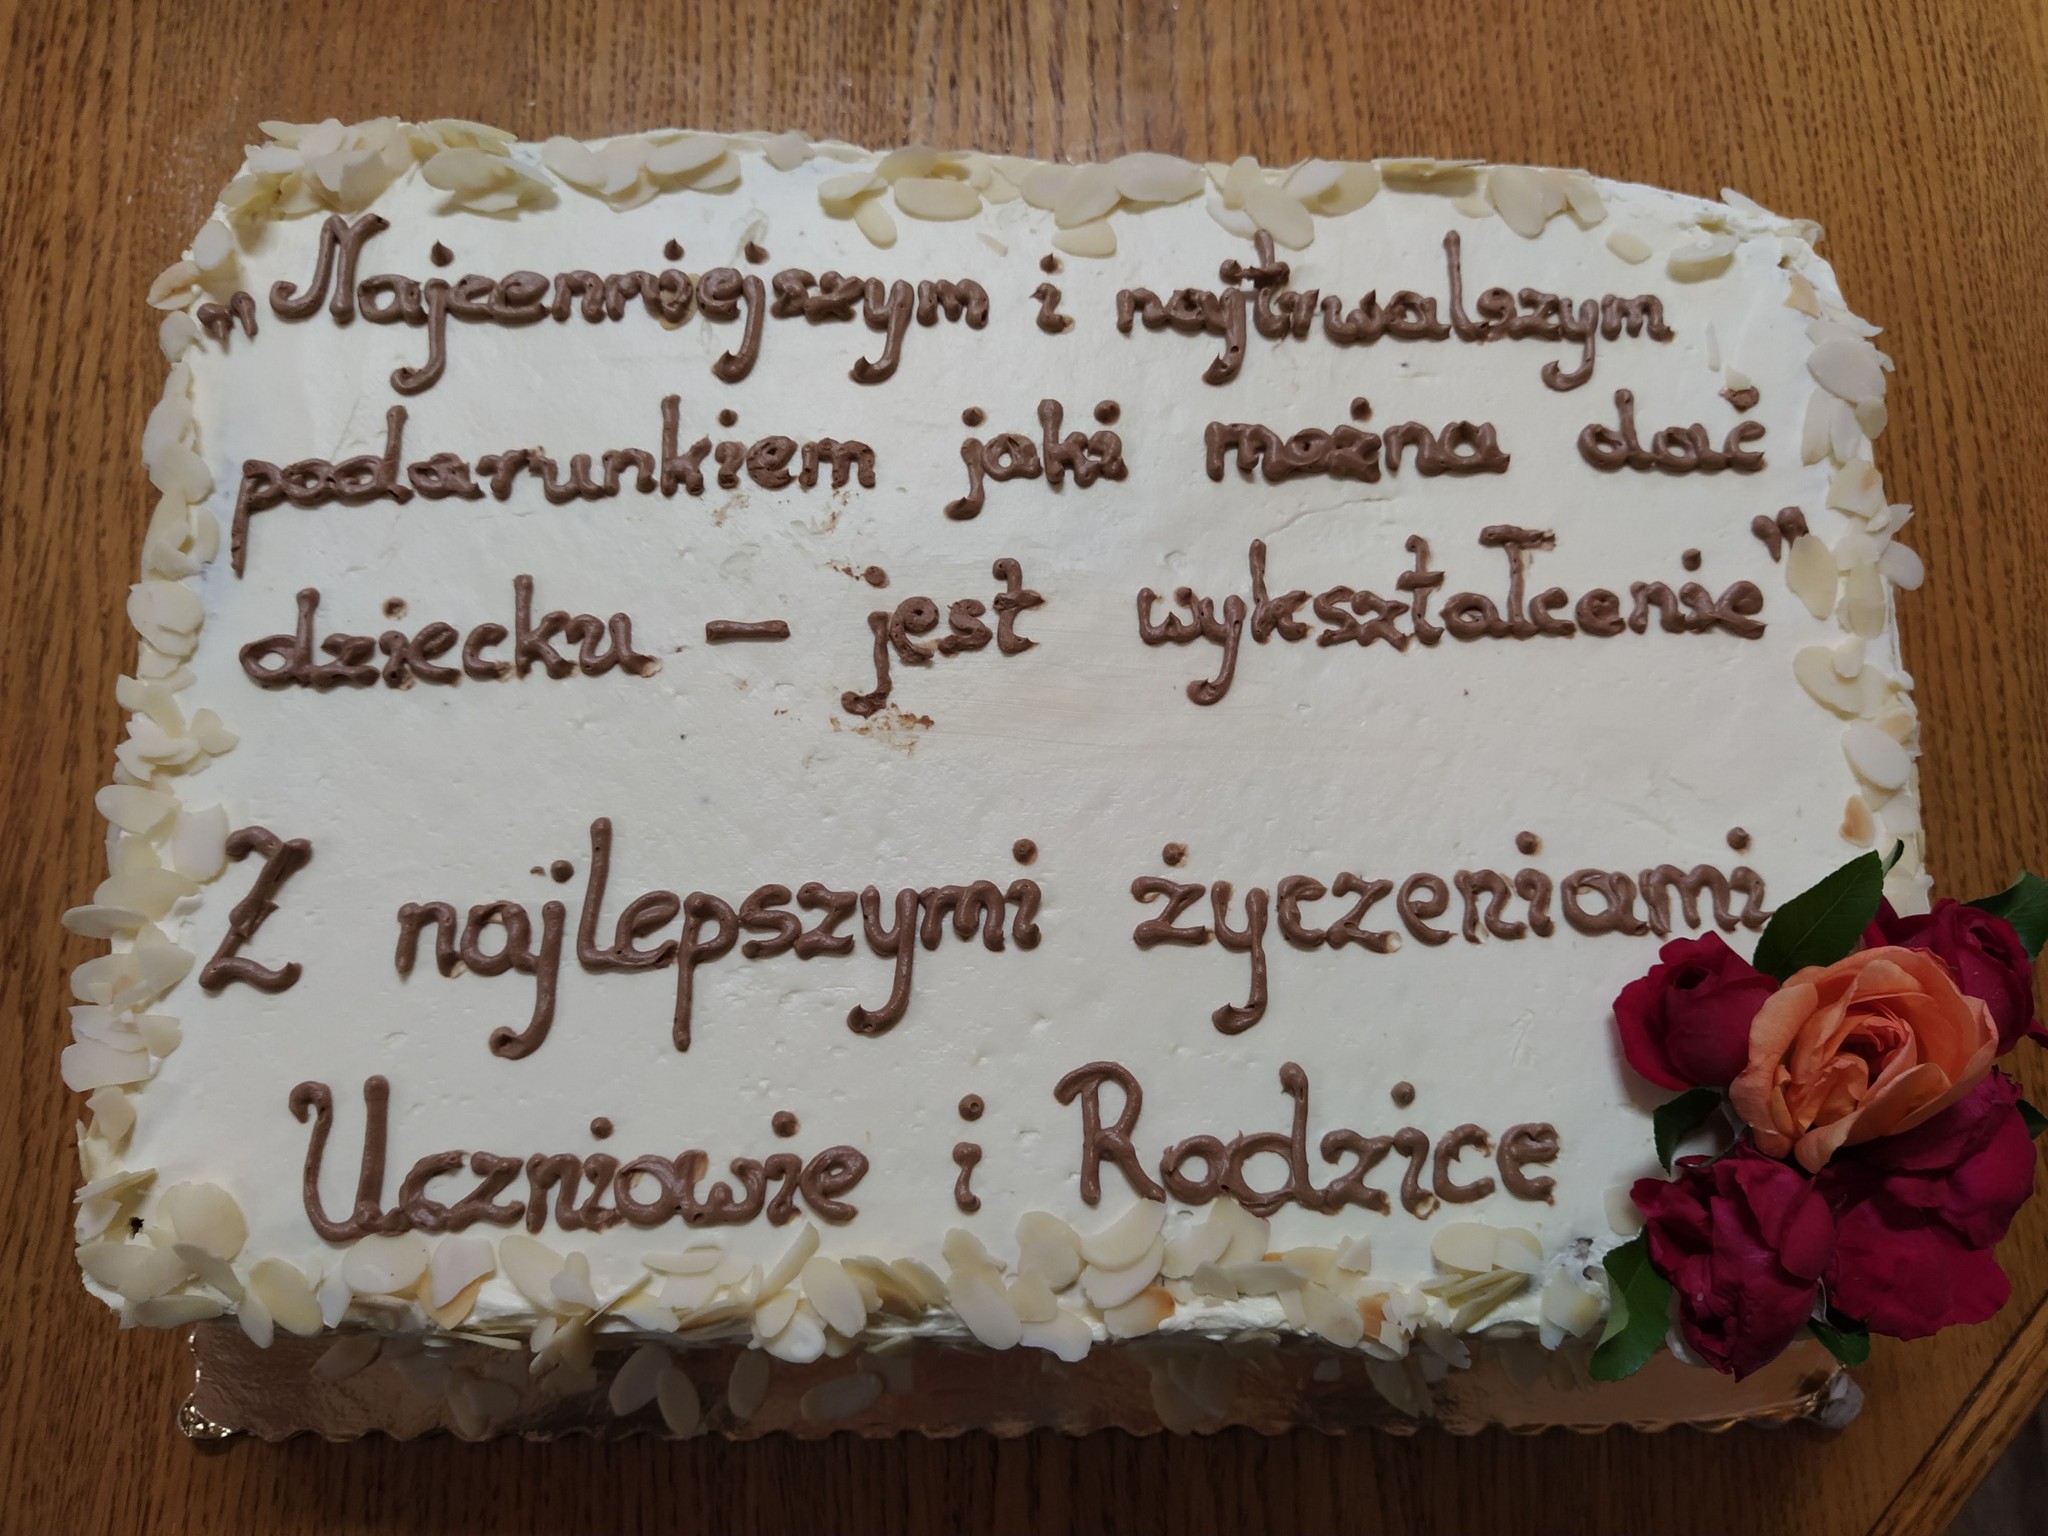 „Najcenniejszym i najtrwalszym
podarunkiem jaki można dać
dziecku – jest wykształcenie”
Z najlepszymi życzeniami
Uczniowie i Rodzice